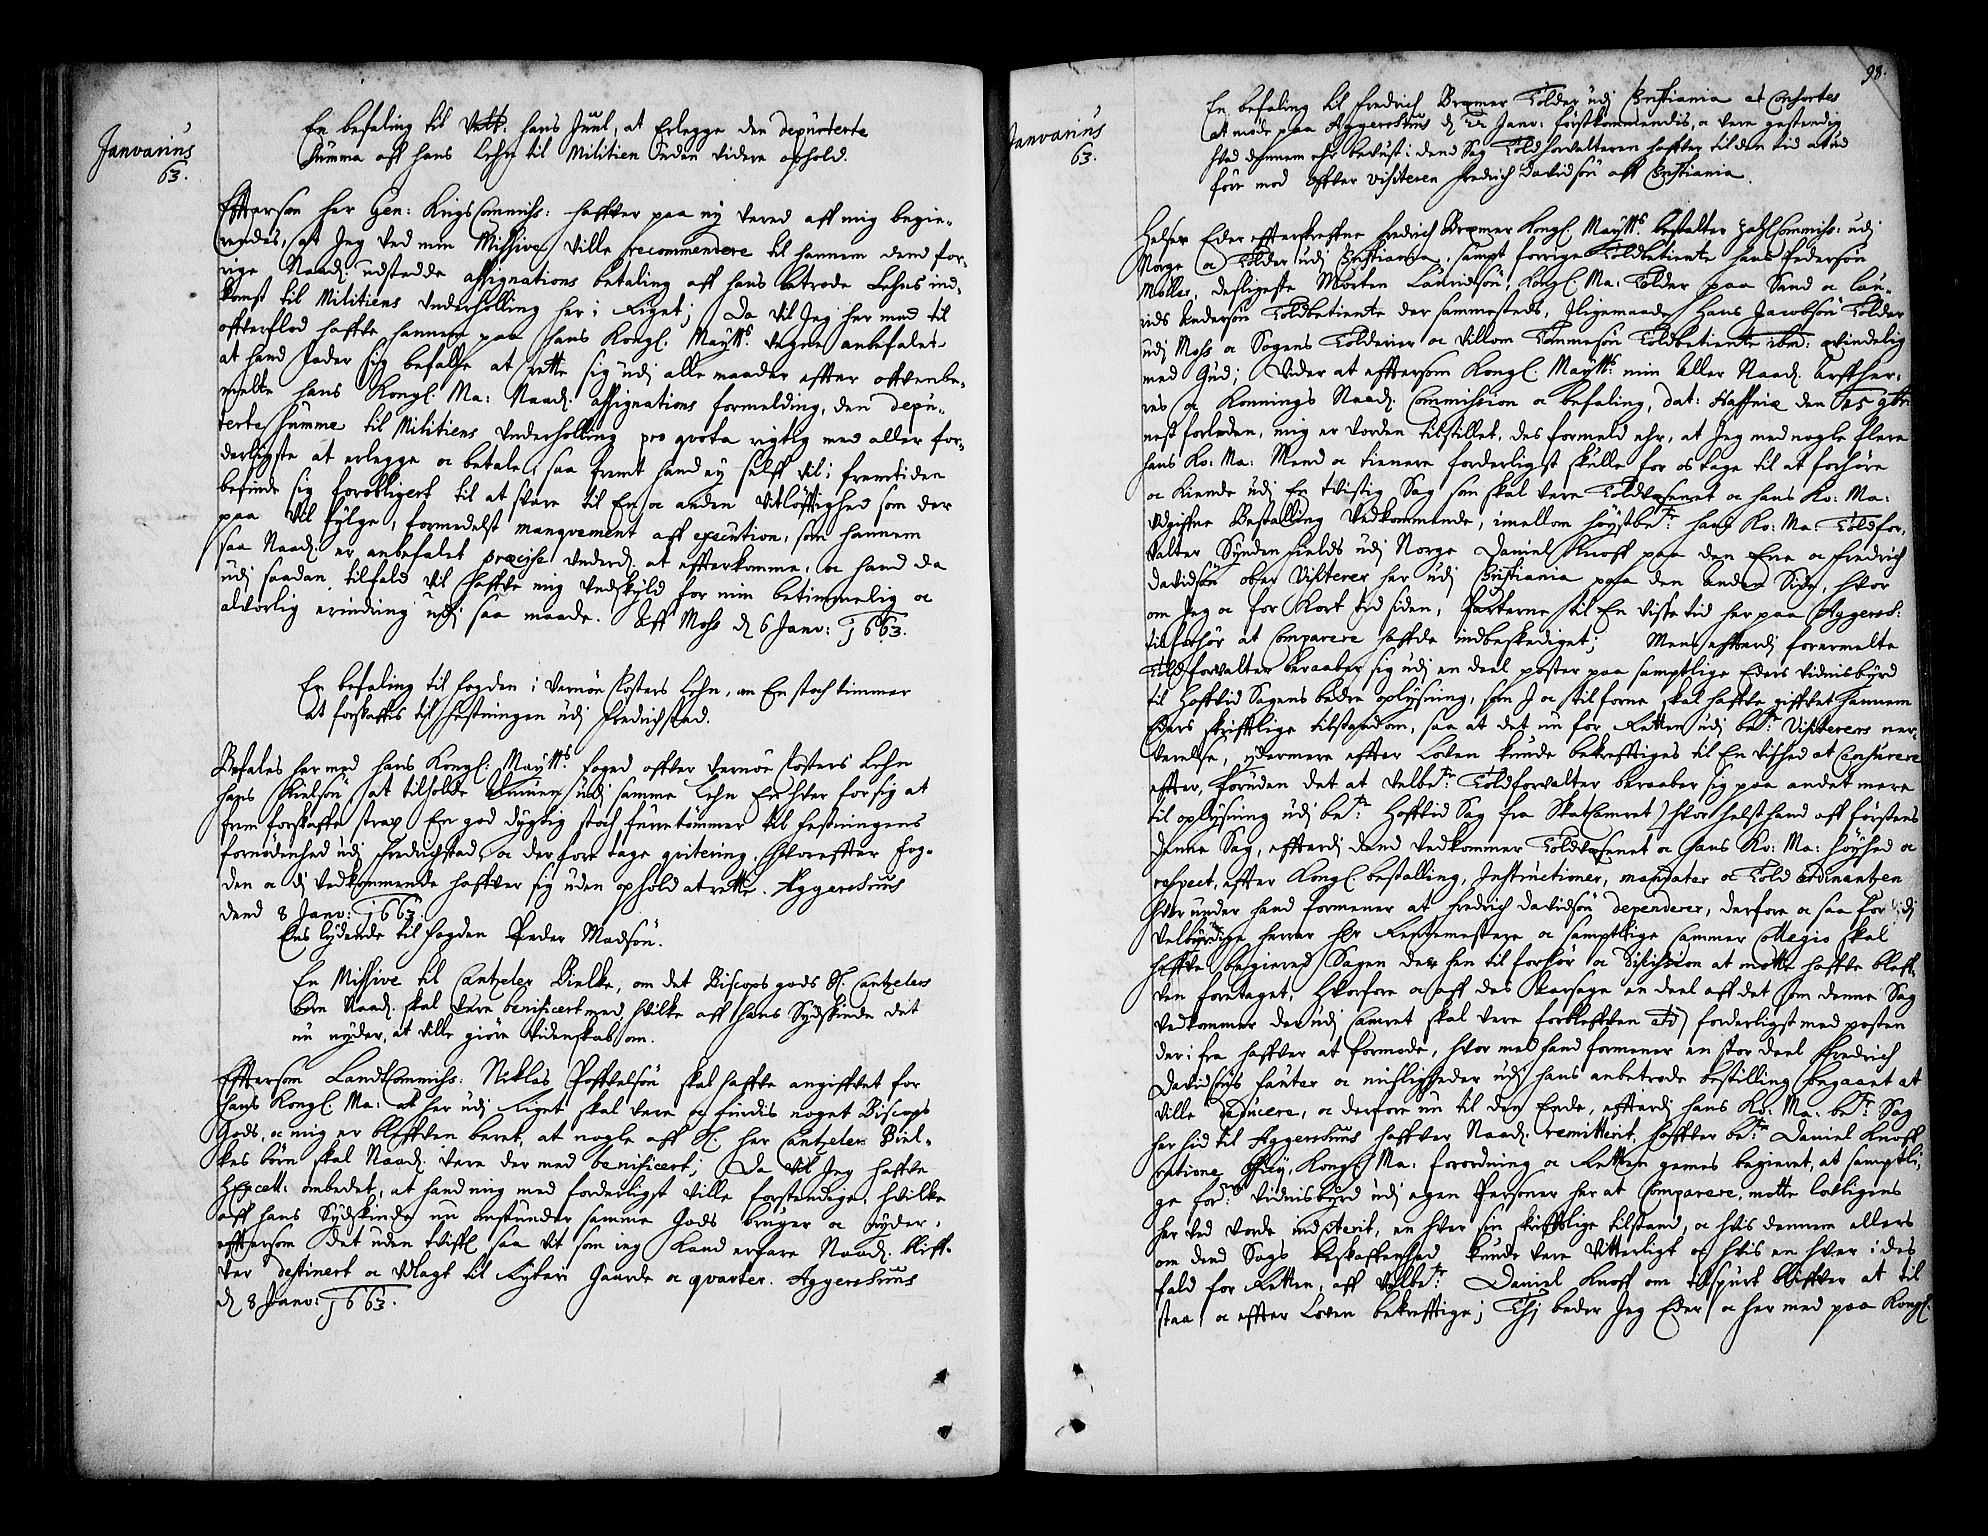 Janvarius
63.
En befaling til Velb. Hans Juul, at Erlegge den deputerte
Summa aff hans Lehn til Militien Uden videre ophold.
Efftersom her Gen: KrigsCommiss: haffver paa ny vered aff mig begie-
rendes, at Jeg ved min Missive ville recommendere til hannem dend for-
rige Naadˢ udstedde assignations betaling aff hans betrode Lehns ind-
komst til Militiens Underholling her i Riget; Da vil Jeg her med til
offverflod haffve hannem paa hans Kongl. Maÿtts. vegne anbefalet
at hand lader sig befalhe at rette sig udj alle maader effter offvenbe-
melte hans Kongl. Ma: Naadˢ assignations formelding, den depu-
terte Summa til Militiens Underholling pro qvota rigtig med aller for-
derligste at erlegge oc betale, saa fremt hand ey selff vil i fremtiden
befinde sig forobligert til at svare til En oc anden Vitløfftighed som der
paa vil følge, formedelst manqvement aff execution, som hannem
saa Naadˢ er anbefalet præcise underdˢ at effterkomme, oc hand da
udj saadan tilfald vil haffve mig undskyld for min betimmelig oc
alvorlig erindring udj saa maade. Aff Moss dˢ 6 Janv: 1663.
En befaling til Fogden i Vernøe Closters Lehn, om En stoch timmer
at forskaffis til Festningen udj Fredrichstad.
Befales her med hans Kongl. Maÿtts. Foged offver Vernøe Closters Lehn
Hans Nielsøn at tilholde Almuen udj samme Lehn En hver for sig at
frem forskaffe strax En god dygtig stoch furretømmer til Festningens
fornødenhed udj Fredrichstad, oc derfore tage qvitering. Hvoreffter Fog-
den oc dj vedkommende haffver sig uden ophold at rette. Aggershuus
dend 8 Janv: 1663.
Ens lydende til Fogden Peder Madsøn.
En Missive til Cantzeler Bielke, om det Biscops gods Sl. Cantzelers
børn Naadˢ skal vere benificert med, hvilke aff hans Sydskinde det
nu nyder, at ville giøre Videnskab om.
Efftersom LandCommiss: Niklas Poffvelsøn skal haffve angiffvet for
hans Kongl. Ma: at her udj Riget skal vere oc findis noget Biscops
Gods, oc mig er bleffven beret, at nogle aff Sl. her Cantzeler Biel-
kes børn skal Naadˢ vere der med benificert; Da vil Jeg haffve
H. Excell: ombedet, at hand mig med forderligst ville forstendige, hvilke
aff hans Sydskinde nu omstunder samme Gods bruger oc nyder,
efftersom det uden tviffl saa vit som ieg kand erfare Naadˢ bliff-
ver destinert oc Udlagt til Ryteri Gaarde oc qvarter. Aggershuus
dˢ 8 Janv: 1663.
98.
Janvarius
63.
En befaling til Fredrich Bremer Tolder udj Christiania et Consortes
at møde paa Aggershuus dˢ 22 Janv: førstkommendis, oc vere gestendig
hvad dennem ehr bevust i dend Sag Toldforvalteren haffver til den tid at ud
føre mod Offver Visiteren Fredrich Davidsøn aff Christiania.
Helser Eder effterskreffne Fredrich Bremer Kongl. Maÿtts. bestalter ZahlCommiss: udj
Norge oc Tolder udj Christiania, sampt forrige Toldbetiente Hans Pedersøn
Møller, desligeste Morten Lauridsøn, Kongl. Ma: Tolder paa Sand oc Lau-
rids Andersøn Toldbetiente der sammesteds, Iligemaade Hans Jacobsøn Tolder
udj Moss oc Sognes Tolderier oc Villom Tommesøn Toldbetiente ibm: qvindelig
med Gud; Vider at efftersom Kongl. Maÿtts. min Aller Naadˢ Arffher-
res oc Konnings Naadˢ Commission oc befaling, dat: Haffniæ den 25 9bris
nest forleden, mig er vorden tilstillet, des formeld ehr, at Jeg med nogle flere
hans Ko: Ma: Mend oc tienere forderligst skulle for os tage til at forhøre
oc kiende udj En tvistig Sag som skal vere Toldvesenet oc hans Ko: Ma:
Udgiffne Bestalling vedkommende, imellom høystbete: hans Ko: Ma: Toldfor-
valter Synden Fields udj Norge Daniel Knoff paa den Ene oc Fredrich
Davidsøn ober Visiterer her udj Christiania paa den Anden Side, hvor
om Jeg oc for kort tid siden, Parterne til En visse tid her paa Aggersh:
til forhør at Comparere haffde indbeskediget; Mens efftterdj forermelte
Toldforvalter beraaber sig udj en deel poster paa samptlige Eders vidnisbyrd
til Hoffvid Sagens bedre oplysning, som I oc tilforne skal haffve giffvet hannem
Eders skrifftlige tilstand om, saa at det nu for Retten udj bete: Visiterers ner-
verelse, ydermere effter Loven kunde bekrefftiges til En vished at Censurere
effter, foruden det at velbete: Toldforvalter beraaber sig paa andet mere
til oplysning udj bete: Hoffvid Sag fra SkatCamret) hvor helst hand aff førstens
denne Sag, effterdj dend vedkommer Toldvesenet oc hans Ko: Ma: høyhed oc
respect, effter Kongl. bestalling, Instructioner, mandater oc Told ordinantzen
hvor under hand formener at Fredrich Davidsøn dependerer, derfore oc saa for dj
Velbyrdige herrer Hr Rentemestere oc samptlige Cammer Collegio skal
haffve begierid Sagen der hen til forhør oc Dissision at motte haffve bleff-
ven foretaget, Hvorfore oc aff des Aarsage en deel aff det som denne Sag
vedkommer der udj Camret skal vere forbleffven etc) forderligst med posten
der i fra haffver at formode, hvor med hand formener en stor deel Fredrich
Davidsøns fauter oc misligheder udj hans anbetrode bestilling begaaet at
ville deducere, oc derfore nu til den Ende, effterdj hans Ko: Ma: bete: Sag
her hid til Aggershuus haffver Naadˢ remitterit, haffver bete: Daniel Knoff
ratione Officij, Kongl. Ma: forordning oc Rettens gemes begieret, at samptli-
ge forne: vidnisbyrd udj egen Personer her at Comparere, motte lovligens
her ved vorde indciterit, en hver sin skrifftlige tilstand, oc hvis dennem ellers
om dend Sags beskaffenhed kunde vere vitterligt oc hvis en hver i des
fald for Retten, aff velbete: Daniel Knoff om tilspurt bliffver at til
staa oc effter Loven bekrefftige; Thj beder Jeg Eder oc her med paa Kongl.